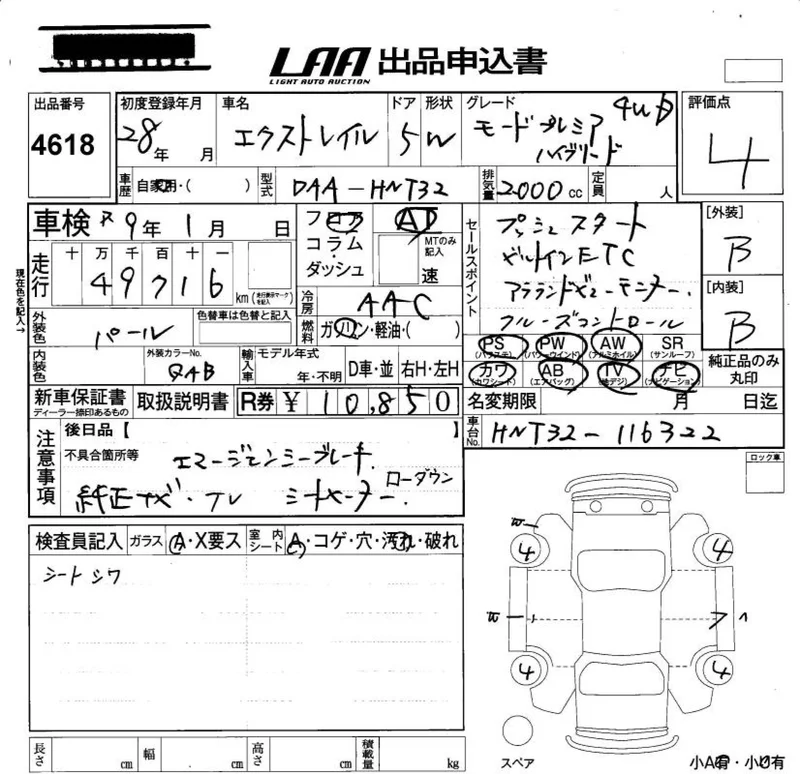 LAA 出品申込書
LIGHT AUTO AUCTION
出品番号 初度登録年月 車名 ドア 形状 グレード 評価点
4618 28年 月 エクストレイル 5 W モードプレミア 4WD 4
ハイブリード
車歴 自家用・( ) 型式 DAA-HNT32 排気量 2000cc 定員 人
車検 R9年 1月 日 フロア AT セールスポイント プッシュスタート [外装]
コラム・ MTのみ記入 ビルトインETC B
ダッシュ 速 アラウンドビューモニター.
走行 十 万 千 百 十 一
49716 km (走行表示マークを記入) 冷房 AAC クルーズコントロール [内装]
現在色を記入→ B
外装色 パール 色替車は色替と記入 燃料 ガソリン・軽油・( )
PS PW AW SR
(パワステ) (パワーウインド) (アルミホイル) (サンルーフ)
内装色 外装カラーNo. QAB 輸入車 モデル年式 年・不明 D車・並 右H・左H
カワ AB TV ナビ 純正品のみ丸印
(カワシート) (エアバッグ) (地デジ) (ナビゲーション)
新車保証書 取扱説明書 R券 ¥ 10,850 名変期限 月 日迄
ディーラー捺印あるもの
車台No. HNT32-116322
注意事項 後日品【 】
不具合箇所等 エマージェンシーブレーキ ロック車
純正ナビ・TV シートヒーター. ローダウン
検査員記入 ガラス A・X要ス 室内シート A・コゲ・穴・汚れ・破れ
シートシワ
W 4 4
W ーハ
4 4
スペア
長さ cm 幅 cm 高さ cm 積載量 kg 小A有・小凹有